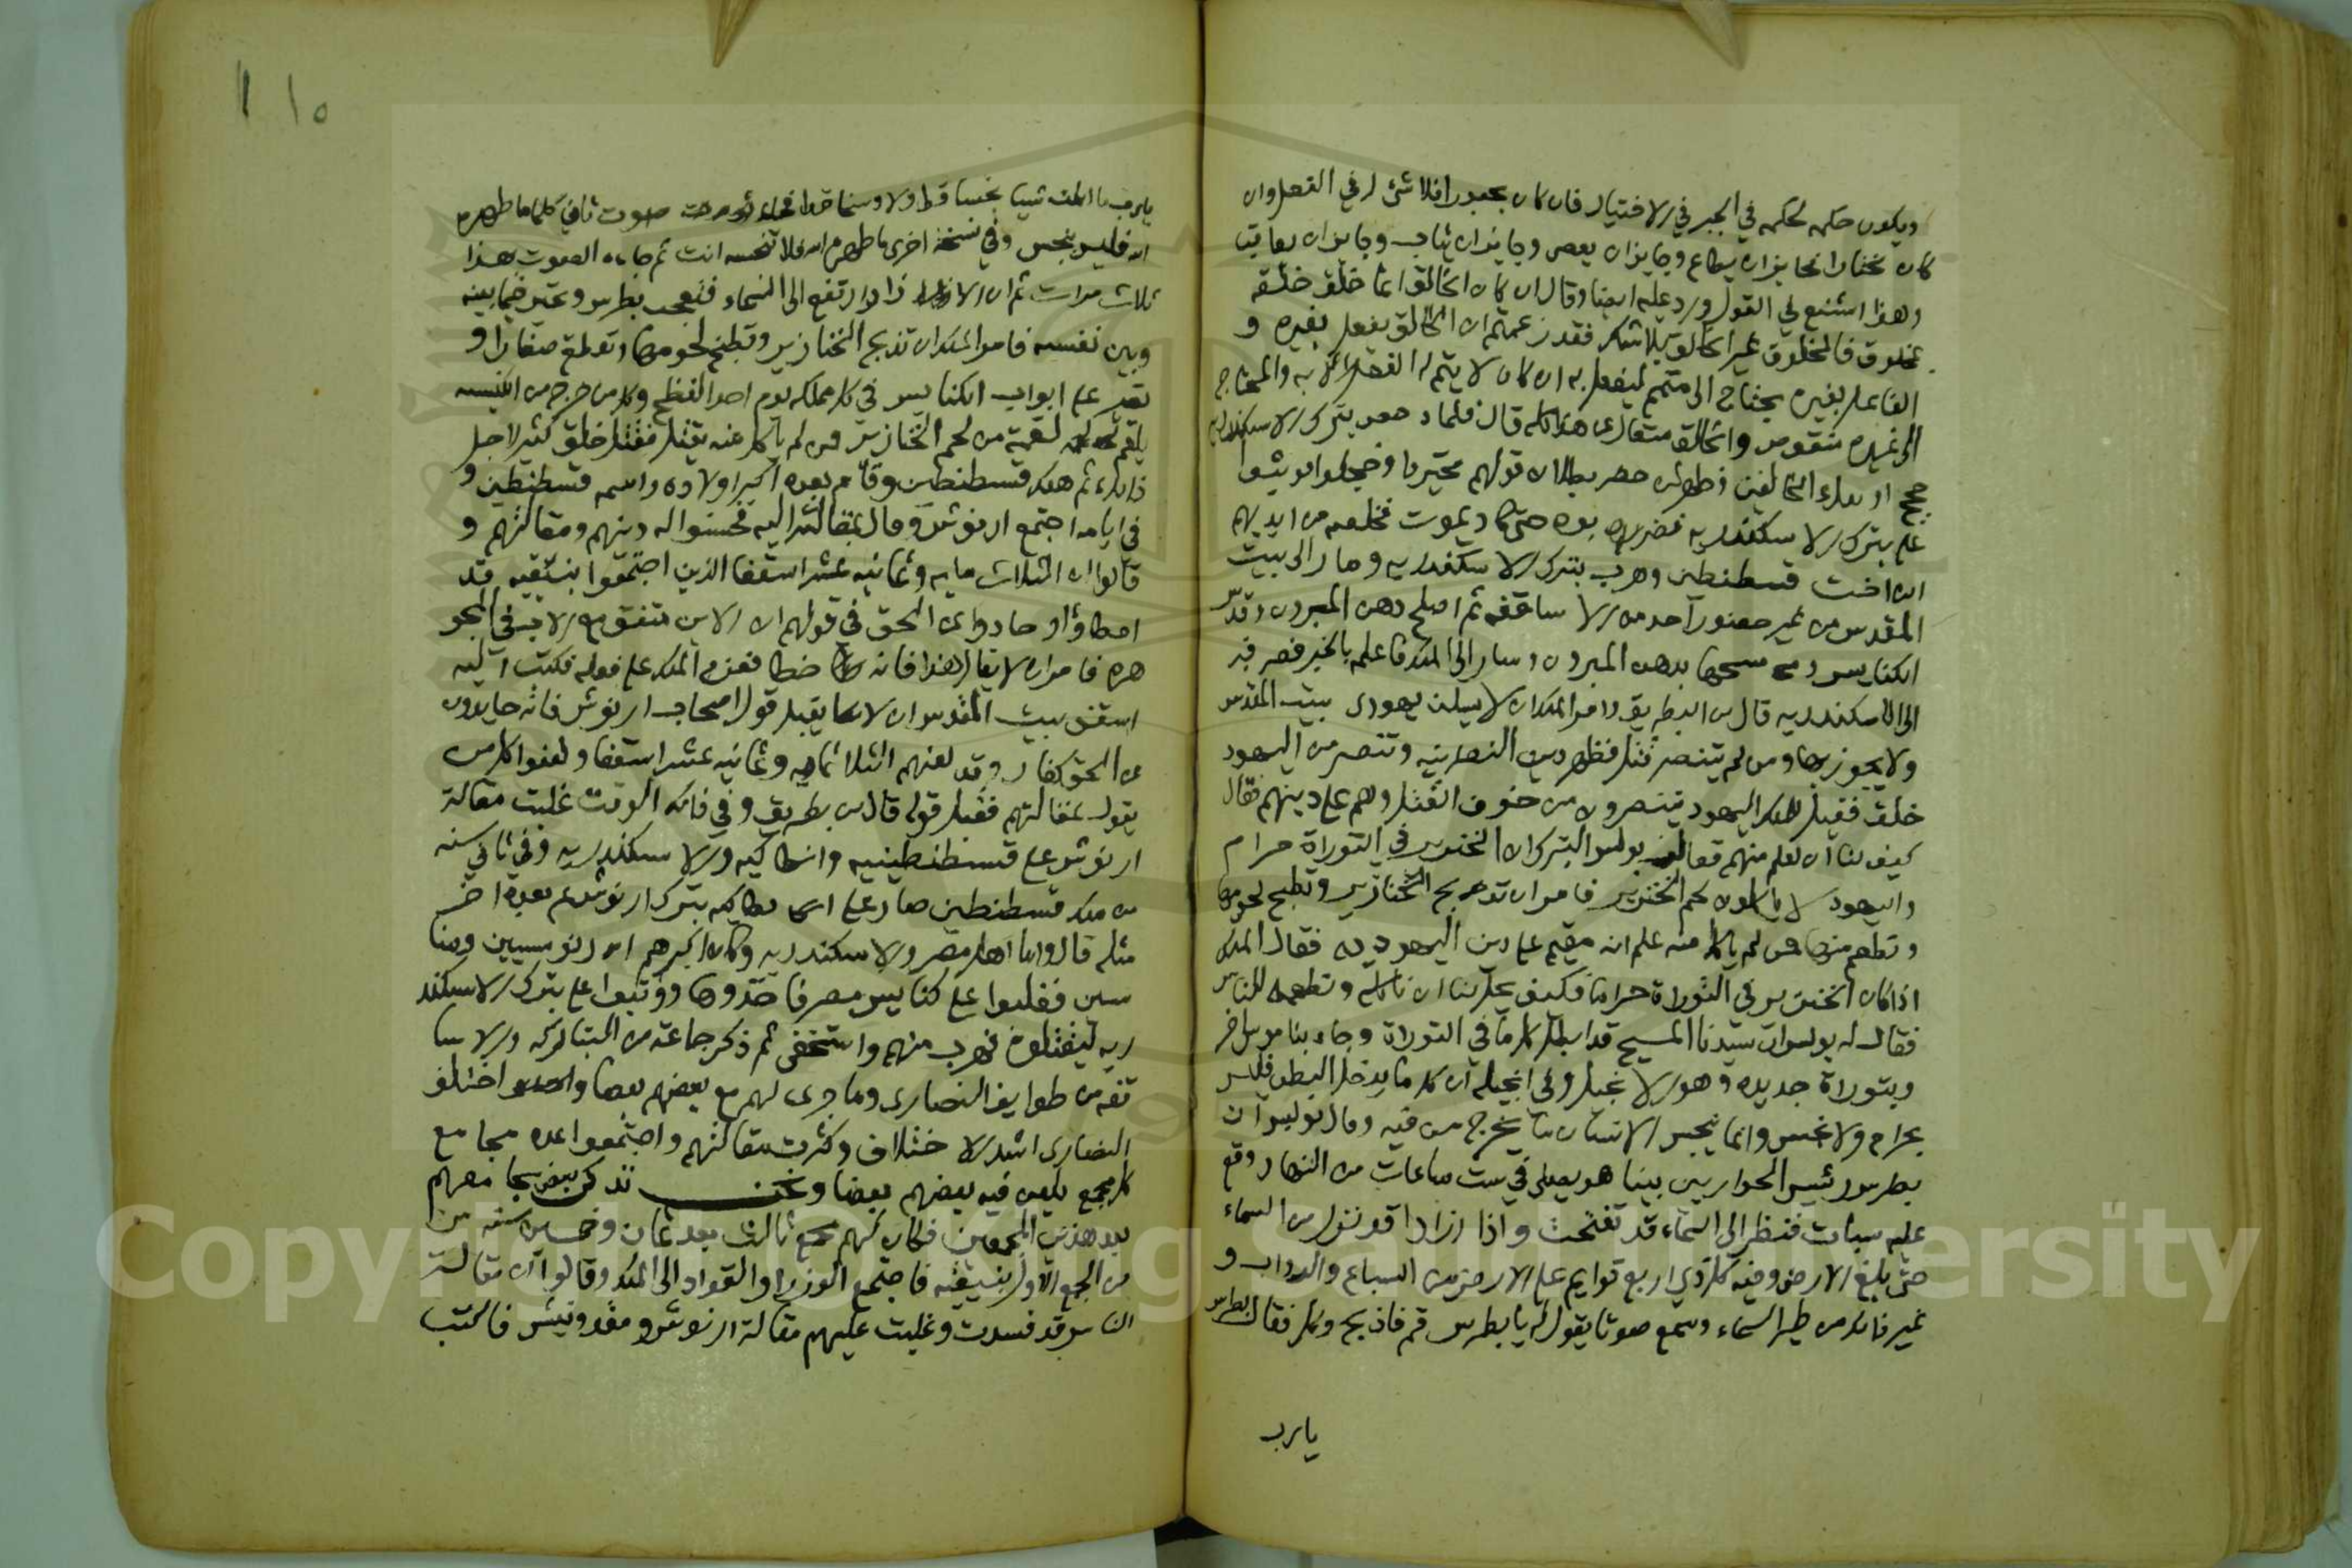 ويكون حكمه لحكمه في الجبر في الاختيار فان كان مجبورا فلا شيء له في الفعل وان
كان مختارا فجايز ان يطاع وجايز ان يعصى وجايز ان يثاب وجايز ان يعاقب
وهذا اشنع في القول ورد عليه ايضا وقال ان كان الخالق انما خلق خلقه
بمخلوق فالمخلوق غير الخالق بلا شك فقد زعمتم ان الخالق يفعل بغيره و
الفاعل بغيره يحتاج الى متمم ليفعل به ان كان لا يتم له الفعل الا به والمحتاج
الى غيره منقوص والخالق متعال عن هذا كله قال فلما دحض بترك الاسكندرية
حجج اولئك المخالفين وظهر لمن حضر بطلان قولهم تحيروا وخجلوا فوثبوا
على بترك الاسكندرية فضربوه حتى كاد يموت فخلصه من ايديهم
ابن اخت قسطنطين وهرب بترك الاسكندرية وصار الى بيت
المقدس من غير حضور احد من الاساقفة ثم اصلح دهن الميرون وقدس
الكنايس ومسحها بدهن الميرون وسار الى الملك فاعلمه بالخبر فصرفه
الى الاسكندرية قال ابن البطريق وامر الملك ان لا يسكن يهودي بيت المقدس
ولا يجوز بها ومن لم يتنصر قتل فظهر دين النصرانية وتنصر من اليهود
خلق فقيل للملك اليهود يتنصرون من خوف القتل وهم على دينهم فقال
كيف لنا ان نعلم منهم فقال بولس البترك ان الخنزير في التوراة حرام
واليهود لا ياكلون لحم الخنزير فامر ان تذبح الخنازير وتطبخ لحومها
وتطعم منها فمن لم ياكل منه علم انه مقيم على دين اليهودية فقال الملك
اذا كان الخنزير في التوراة حراما فكيف يحل لنا ان ناكله ونطعمه للناس
فقال له بولس ان سيدنا المسيح قد ابطل كل ما في التوراة وجاء بناموس اخر
وبتوراة جديدة وهو الانجيل وفي انجيله ان كل ما يدخل البطن فليس
بحرام ولا نجس وانما ينجس الانسان ما يخرج من فيه وقال بولس ان
بطرس رئيس الحواريين بينما هو يصلي في ست ساعات من النهار وقع
عليه سبات فنظر الى السماء قد تفتحت واذا ازار قد نزل من السماء
حتى بلغ الارض وفيه كل ذي اربع قوايم على الارض من السباع والدواب و
غير ذلك من طير السماء وسمع صوتا يقول له يا بطرس قم فاذبح وكل فقال بطرس
يا رب
١٥
يا رب ما اكلت شيئا نجسا قط ولا وسخا قط فجاء صوت ثاني كلما طهره
الله فليس بنجس وفي نسخة اخرى ما طهره الله فلا تنجسه انت ثم جاءه الصوت بهذا
ثلاث مرات ثم ان الازار ارتفع الى السماء فتعجب بطرس وتحير فيما بينه
وبين نفسه فامر الملك ان تذبح الخنازير وتطبخ لحومها وتقطع صغارا و
تصير على ابواب الكنايس في كل مملكه يوم احد الفصح وكل من خرج من الكنيسه
يلقم لقمة من لحم الخنازير فمن لم ياكل منه يقتل فقتل خلق كثير لاجل
ذلك ثم هلك قسطنطين وقام بعده اكبر اولاده واسمه قسطنطين و
في ايامه اجتمع اريوش ومال بمقالته اليه فحسنوا له دينهم ومقالتهم و
قالوا ان الثلاث مايه وثمانيه عشر اسقفا الذين اجتمعوا بنيقيه قد
اخطاوا وحادوا عن الحق في قولهم ان الابن متفق مع الاب في الجو
هر فامر ان لا يقال هذا فانه خطا فعزم الملك على فعله فكتب اليه
اسقف بيت المقدس ان لا يقبل قول اصحاب اريوش فانهم حايدون
عن الحق كفار وقد لعنهم الثلاثمايه وثمانيه عشر اسقفا ولعنوا كل من
يقول بمقالتهم فقبل قوله قال ابن بطريق وفي ذلك الوقت غلبت مقالة
اريوش على قسطنطينيه وانطاكيه والاسكندريه وفي ثاني سنه
من ملك قسطنطين صار على انطاكيه بترك اريوشي ثم بعده اخر
مثله قال واما اهل مصر والاسكندريه وكان اكثرهم اريوسيين ومنا
نيين فغلبوا على كنايس مصر فاخذوها ووثبوا على بترك الاسكند
ريه ليقتلوه فهرب منهم واستخفى ثم ذكر جماعة من البتاركه والاسا
قفه من طوايف النصارى وما جرى لهم مع بعضهم بعضا واختلف
النصارى اشد الاختلاف وكثرت مقالتهم واجتمعوا عدة مجامع
كل مجمع يلعن فيه بعضهم بعضا ونحن نذكر بعض مجامعهم
بعد هذين المجمعين فكان لهم مجمع ثالث بعد ثمان وخمسين سنه من
من الجمع الاول بنيقيه فاجتمع الوزرا والقواد الى الملك وقالوا ان مقالة
الناس قد فسدت وغلبت عليهم مقالة اريوش ومقدونيش فاكتب
Copyright © King Saud University